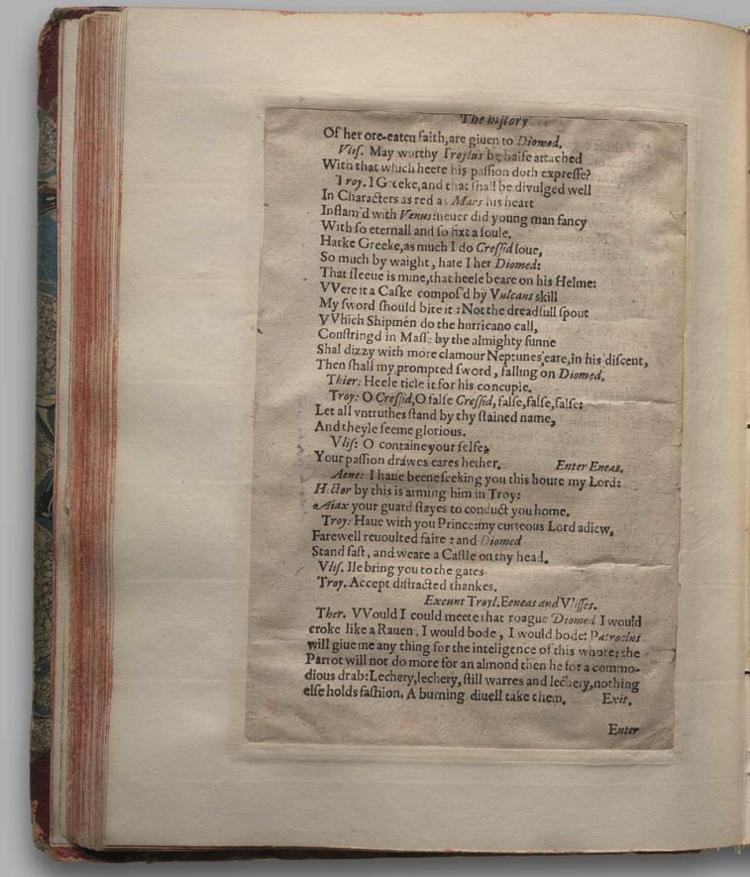 The hiſtory
Of her ore-eaten faith, are giuen to Diomed.
Vliſ. May worthy Troylus be halfe attached
With that which heere his paſſion doth expreſſe?
Troy. I Greeke, and that ſhall be divulged well
In Characters as red as Mars his heart
Inflam'd with Venus: neuer did young man fancy
With ſo eternall and ſo fixt a ſoule.
Harke Greeke, as much I do Creſſid loue,
So much by waight, hate I her Diomed:
That ſleeue is mine, that heele beare on his Helme:
VVere it a Caſke compoſ'd by Vulcans skill
My ſword ſhould bite it: Not the dreadfull ſpout
VVhich Shipmen do the hurricano call,
Conſtringd in Maſſe by the almighty ſunne
Shal dizzy with more clamour Neptunes eare, in his diſcent,
Then ſhall my prompted ſword, falling on Diomed.
Thier: Heele ticle it for his concupie.
Troy: O Creſſid, O falſe Creſſid, falſe, falſe, falſe:
Let all vntruthes ſtand by thy ſtained name,
And theyle ſeeme glorious.
Vliſ: O containe your ſelfe,
Your paſſion drawes eares hether. Enter Eneas.
Aene: I haue beene ſeeking you this houre my Lord:
Hector by this is arming him in Troy:
Aiax your guard ſtayes to conduct you home.
Troy: Haue with you Prince: my curteous Lord adiew,
Farewell reuoulted faire: and Diomed
Stand faſt, and weare a Caſtle on thy head.
Vliſ. Ile bring you to the gates
Troy. Accept diſtracted thankes.
Exeunt Troyl. Eeneas and Vliſſes.
Ther. VVould I could meete that roague Diomed I would
croke like a Rauen, I would bode, I would bode: Patroclus
will giue me any thing for the inteligence of this whore: the
Parrot will not do more for an almond then he for a commo-
dious drab: Lechery, lechery, ſtill warres and lechery, nothing
elſe holds faſhion. A burning diuell take them. Exit.
Enter